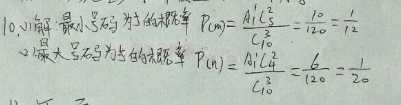 10.(1)解 最小号码为5的概率 P(m)=\frac{A_1^1C_5^2}{C_{10}^3}=\frac{10}{120}=\frac{1}{12}
(2)最大号码为5的的概率 P(n)=\frac{A_1^1C_4^2}{C_{10}^3}=\frac{6}{120}=\frac{1}{20}